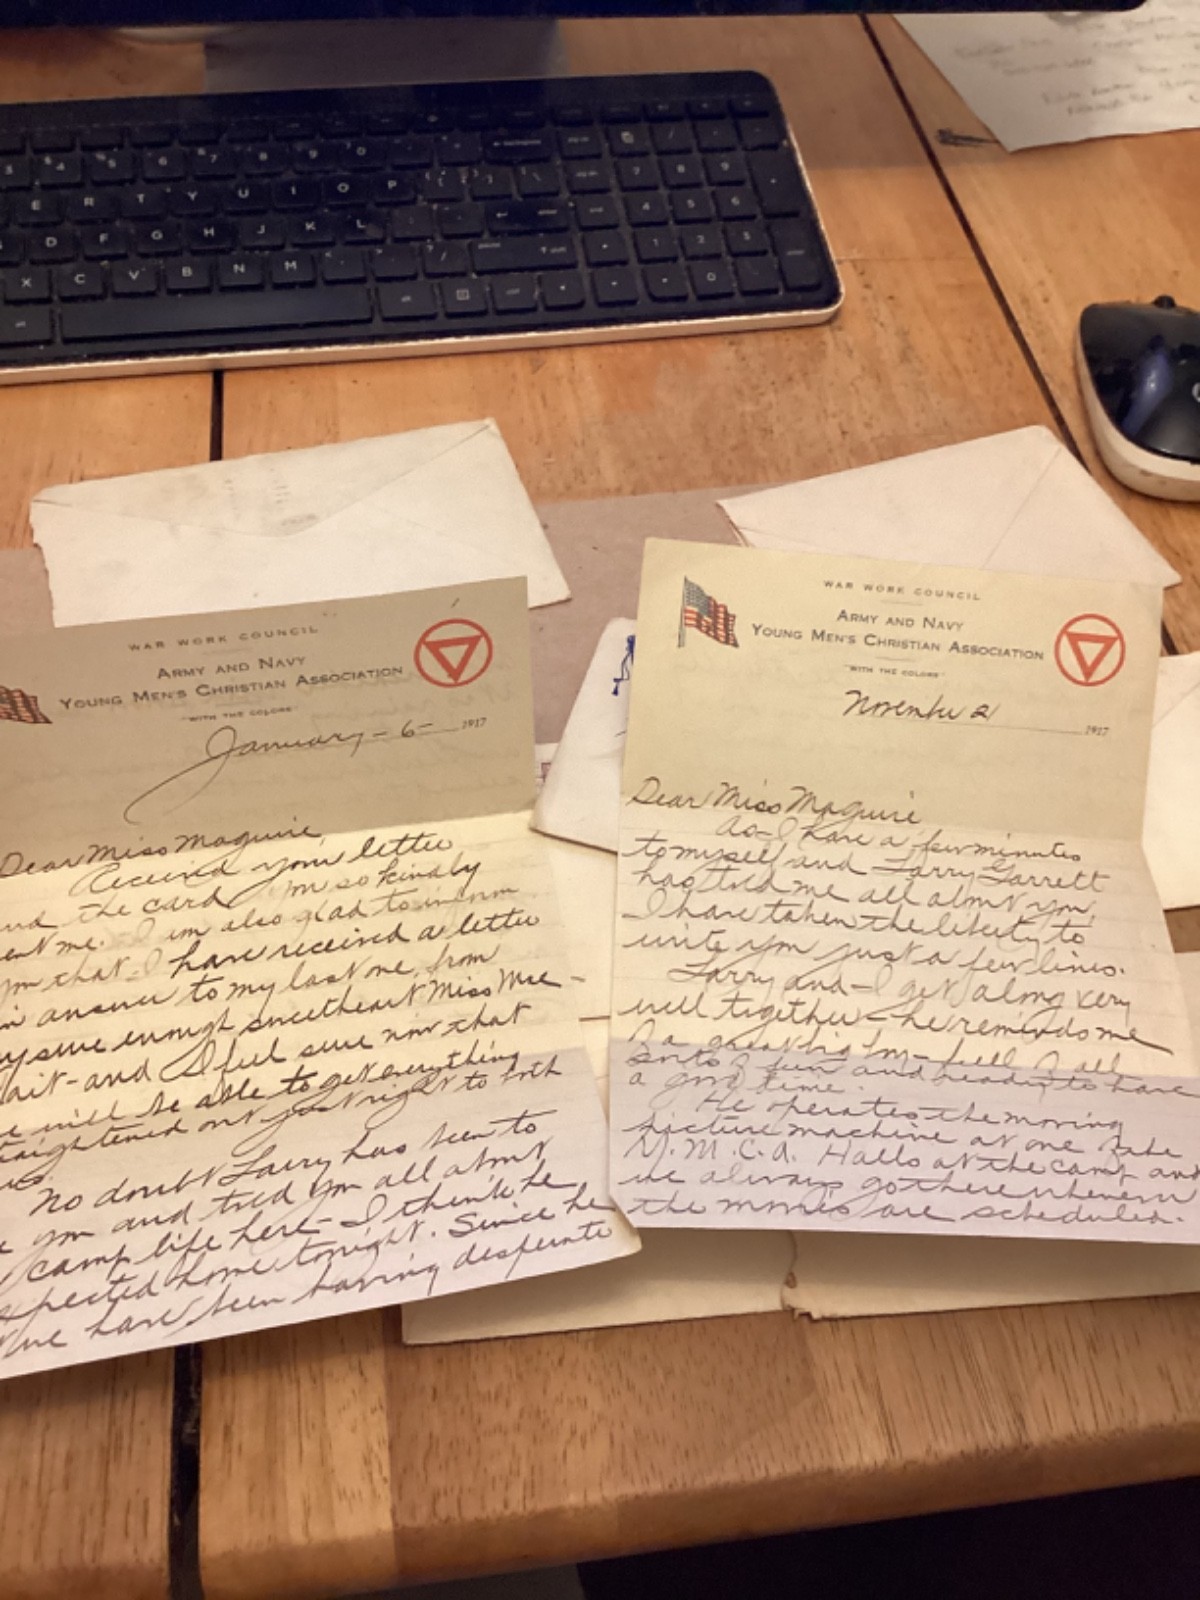 WAR WORK COUNCIL
ARMY AND NAVY
YOUNG MEN'S CHRISTIAN ASSOCIATION
"WITH THE COLORS"
January - 6 - 1917
Dear Miss Maguire
Received your letter
and the card you so kindly
sent me. I am also glad to inform
you that I have received a letter
in answer to my last one, from
my sure enough sweetheart Miss
and I feel sure now that
we will be able to get everything
straightened out just right to both
us.
No doubt Larry has been to
see you and told you all about
camp life here - I think he
expected home tonight. Since he
we have been having desperate
WAR WORK COUNCIL
ARMY AND NAVY
YOUNG MEN'S CHRISTIAN ASSOCIATION
"WITH THE COLORS"
November 2 1917
Dear Miss Maguire
As I have a few minutes
to myself and Larry Garrett
has told me all about you,
I have taken the liberty to
write you just a few lines.
Larry and I get along very
well together - he reminds me
of a great big boy - full of all
sorts of fun and ready to have
a good time.
He operates the moving
picture machine at one of the
Y.M.C.A. Halls at the camp and
we always go there whenever
the movies are scheduled.
3 4 5 6 7 8 9 0
E R T Y U I O P
D F G H J K L
X C V B N M
7 8 9
4 5 6
1 2 3
0